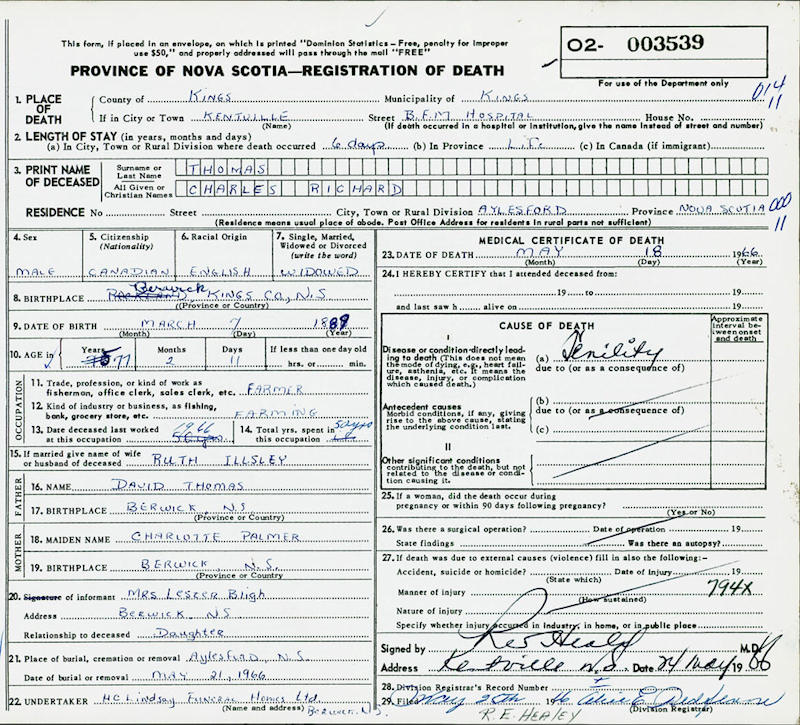 This form, if placed in an envelope, on which is printed "Dominion Statistics - Free, penalty for improper
use $50," and properly addressed will pass through the mail "FREE"
O2- 003539
PROVINCE OF NOVA SCOTIA—REGISTRATION OF DEATH
For use of the Department only
014
11
1. PLACE OF DEATH
County of KINGS Municipality of KINGS
If in City or Town KENTVILLE Street B.F.M HOSPITAL House No.
(Name) (If death occurred in a hospital or institution, give the name instead of street and number)
2. LENGTH OF STAY (in years, months and days)
(a) In City, Town or Rural Division where death occurred 6 days (b) In Province LIFE (c) In Canada (if immigrant)
3. PRINT NAME OF DECEASED
Surname or Last Name THOMAS
All Given or Christian Names CHARLES RICHARD
RESIDENCE No Street City, Town or Rural Division AYLESFORD Province NOVA SCOTIA
000
11
(Residence means usual place of abode. Post Office Address for residents in rural parts not sufficient)
4. Sex
MALE
5. Citizenship (Nationality)
CANADIAN
6. Racial Origin
ENGLISH
7. Single, Married, Widowed or Divorced (write the word)
WIDOWED
8. BIRTHPLACE Berwick, KINGS CO, N.S
(Province or Country)
9. DATE OF BIRTH MARCH 7 1889
(Month) (Day) (Year)
10. AGE in
Years Months Days If less than one day old
77 2 11 hrs. or min.
OCCUPATION
11. Trade, profession, or kind of work as fisherman, office clerk, sales clerk, etc. FARMER
12. Kind of industry or business, as fishing, bank, grocery store, etc. FARMING
13. Date deceased last worked at this occupation 1966
14. Total yrs. spent in this occupation 50 yrs
15. If married give name of wife or husband of deceased RUTH ILLSLEY
FATHER
16. NAME DAVID THOMAS
17. BIRTHPLACE BERWICK, NS
(Province or Country)
MOTHER
18. MAIDEN NAME CHARLOTTE PALMER
19. BIRTHPLACE BERWICK, N.S.
(Province or Country)
20. Signature of informant MRS LESTER Bligh
Address BERWICK NS
Relationship to deceased Daughter
21. Place of burial, cremation or removal Aylesford N.S.
Date of burial or removal MAY 21, 1966
22. UNDERTAKER H C Lindsay Funeral Homes Ltd
(Name and address) BERWICK, N.S.
MEDICAL CERTIFICATE OF DEATH
23. DATE OF DEATH MAY 18 1966
(Month) (Day) (Year)
24. I HEREBY CERTIFY that I attended deceased from:
19 to 19
and last saw h alive on 19
CAUSE OF DEATH
Approximate interval between onset and death
I
Disease or condition directly leading to death (This does not mean the mode of dying, e.g., heart failure, asthenia, etc. It means the disease, injury, or complication which caused death.)
(a) Senility
due to (or as a consequence of)
Antecedent causes
Morbid conditions, if any, giving rise to the above cause, stating the underlying condition last.
(b)
due to (or as a consequence of)
(c)
II
Other significant conditions
contributing to the death, but not related to the disease or condition causing it.
25. If a woman, did the death occur during pregnancy or within 90 days following pregnancy?
(Yes or No)
26. Was there a surgical operation? Date of operation 19
State findings Was there an autopsy?
27. If death was due to external causes (violence) fill in also the following:-
Accident, suicide or homicide? Date 19
(State which)
794X
Manner of injury
(How sustained)
Nature of injury
Specify whether injury occurred in industry, in home, or in public place
Signed by M.D.
Address Kentville N.S. Date 24 May 1966
28. Division Registrar's Record Number
29. Filed May 20th 1966
(Division Registrar)
R.E. HEALEY